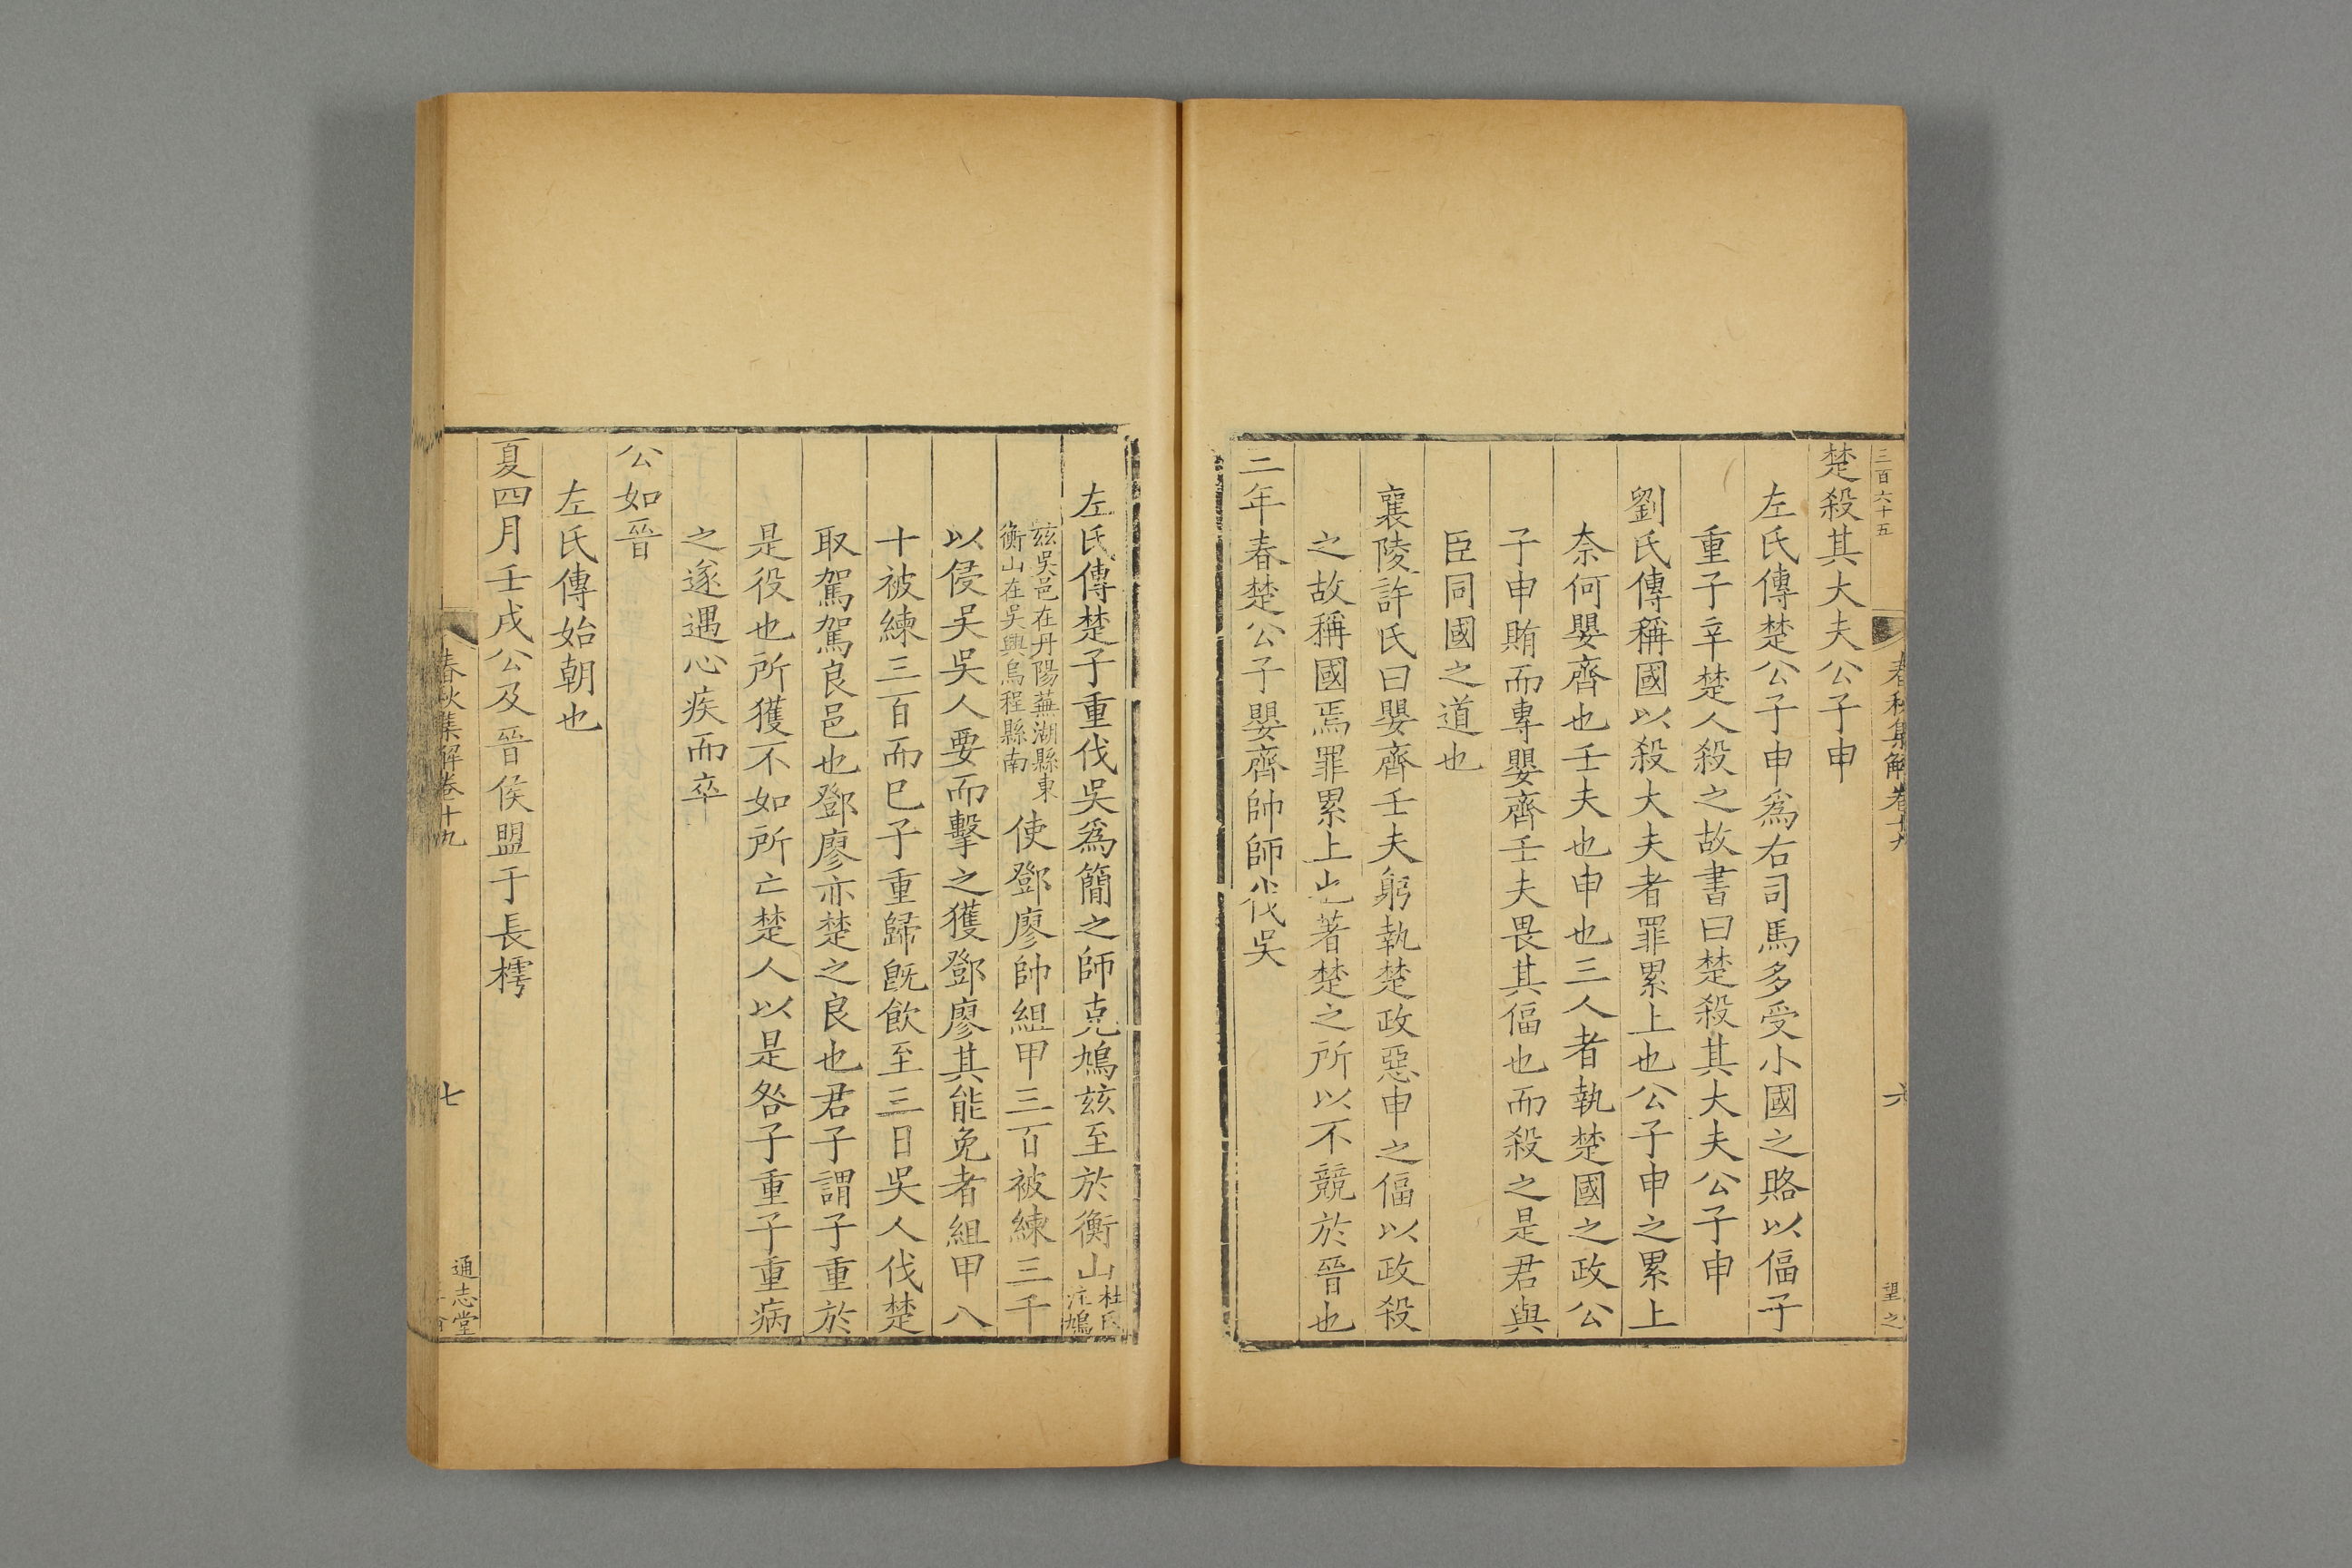 三百六十五
春秋集解卷十九
六
望之
楚殺其大夫公子申
左氏傳楚公子申爲右司馬多受小國之賂以偪子
重子辛楚人殺之故書曰楚殺其大夫公子申
劉氏傳稱國以殺大夫者罪累上也公子申之累上
奈何嬰齊也壬夫也申也三人者執楚國之政公
子申賄而專嬰齊壬夫畏其偪也而殺之是君與
臣同國之道也
襄陵許氏曰嬰齊壬夫躬執楚政惡申之偪以政殺
之故稱國焉罪累上也著楚之所以不競於晉也
三年春楚公子嬰齊帥師伐吳
左氏傳楚子重伐吳爲簡之師克鳩玆至於衡山杜氏注鳩
玆吳邑在丹陽蕪湖縣東衡山在吳興烏程縣南使鄧廖帥組甲三百被練三千
以侵吳吳人要而擊之獲鄧廖其能免者組甲八
十被練三百而已子重歸旣飮至三日吳人伐楚
取駕駕良邑也鄧廖亦楚之良也君子謂子重於
是役也所獲不如所亡楚人以是咎子重子重病
之遂遇心疾而卒
公如晉
左氏傳始朝也
夏四月壬戌公及晉侯盟于長樗
春秋集解卷十九
七
通志堂